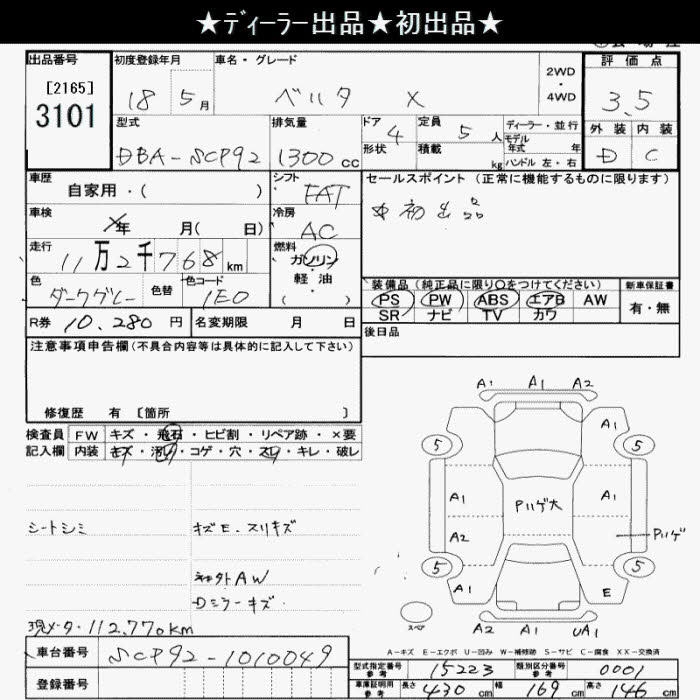 ★ディーラー出品★初出品★
出品番号
[2165]
3101
初度登録年月
18 5月
車名・グレード
ベルタ X
2WD
・
4WD
評価点
3.5
外装 内装
D C
型式
DBA-SCP92
排気量
1300cc
ドア
4
形状
定員
5人
積載
kg
ディーラー・並行
モデル
年式 年
ハンドル 左・右
車歴
自家用・( )
シフト
FAT
セールスポイント (正常に機能するものに限ります)
初出品
車検
年 月( 日)
冷房
AC
走行
11万2千768km
燃料
ガソリン
・
軽油
・
( )
色
ダークグレー
色替
色コード
1E0
装備品(純正品に限り○をつけてください)
PS PW ABS エアB AW
SR ナビ TV カワ
新車保証書
有・無
R券 10,280円
名変期限 月 日
後日品
注意事項申告欄(不具合内容等は具体的に記入して下さい)
修復歴 有 [箇所 ]
検査員
記入欄
FW キズ・飛石・ヒビ割・リペア跡・×要
内装 キズ・汚レ・コゲ・穴・スレ・キレ・破レ
シートシミ
キズE・スリキズ
社外AW
Dミラーキズ
現メータ・112,770km
A1 A1 A2
5 A1 5
A1 Pハゲ大 A1
A2 Pハゲ
5 5
A1 E
スペア
A2 A1 UA1
A-キズ E-エクボ U-凹み W-補修跡 S-サビ C-腐食 XX-交換済
車台番号
SCP92-1010049
登録番号
型式指定番号
参考
15223
類別区分番号
参考
0001
車庫証明用
参考
長さ 430cm 幅 169cm 高さ 146cm